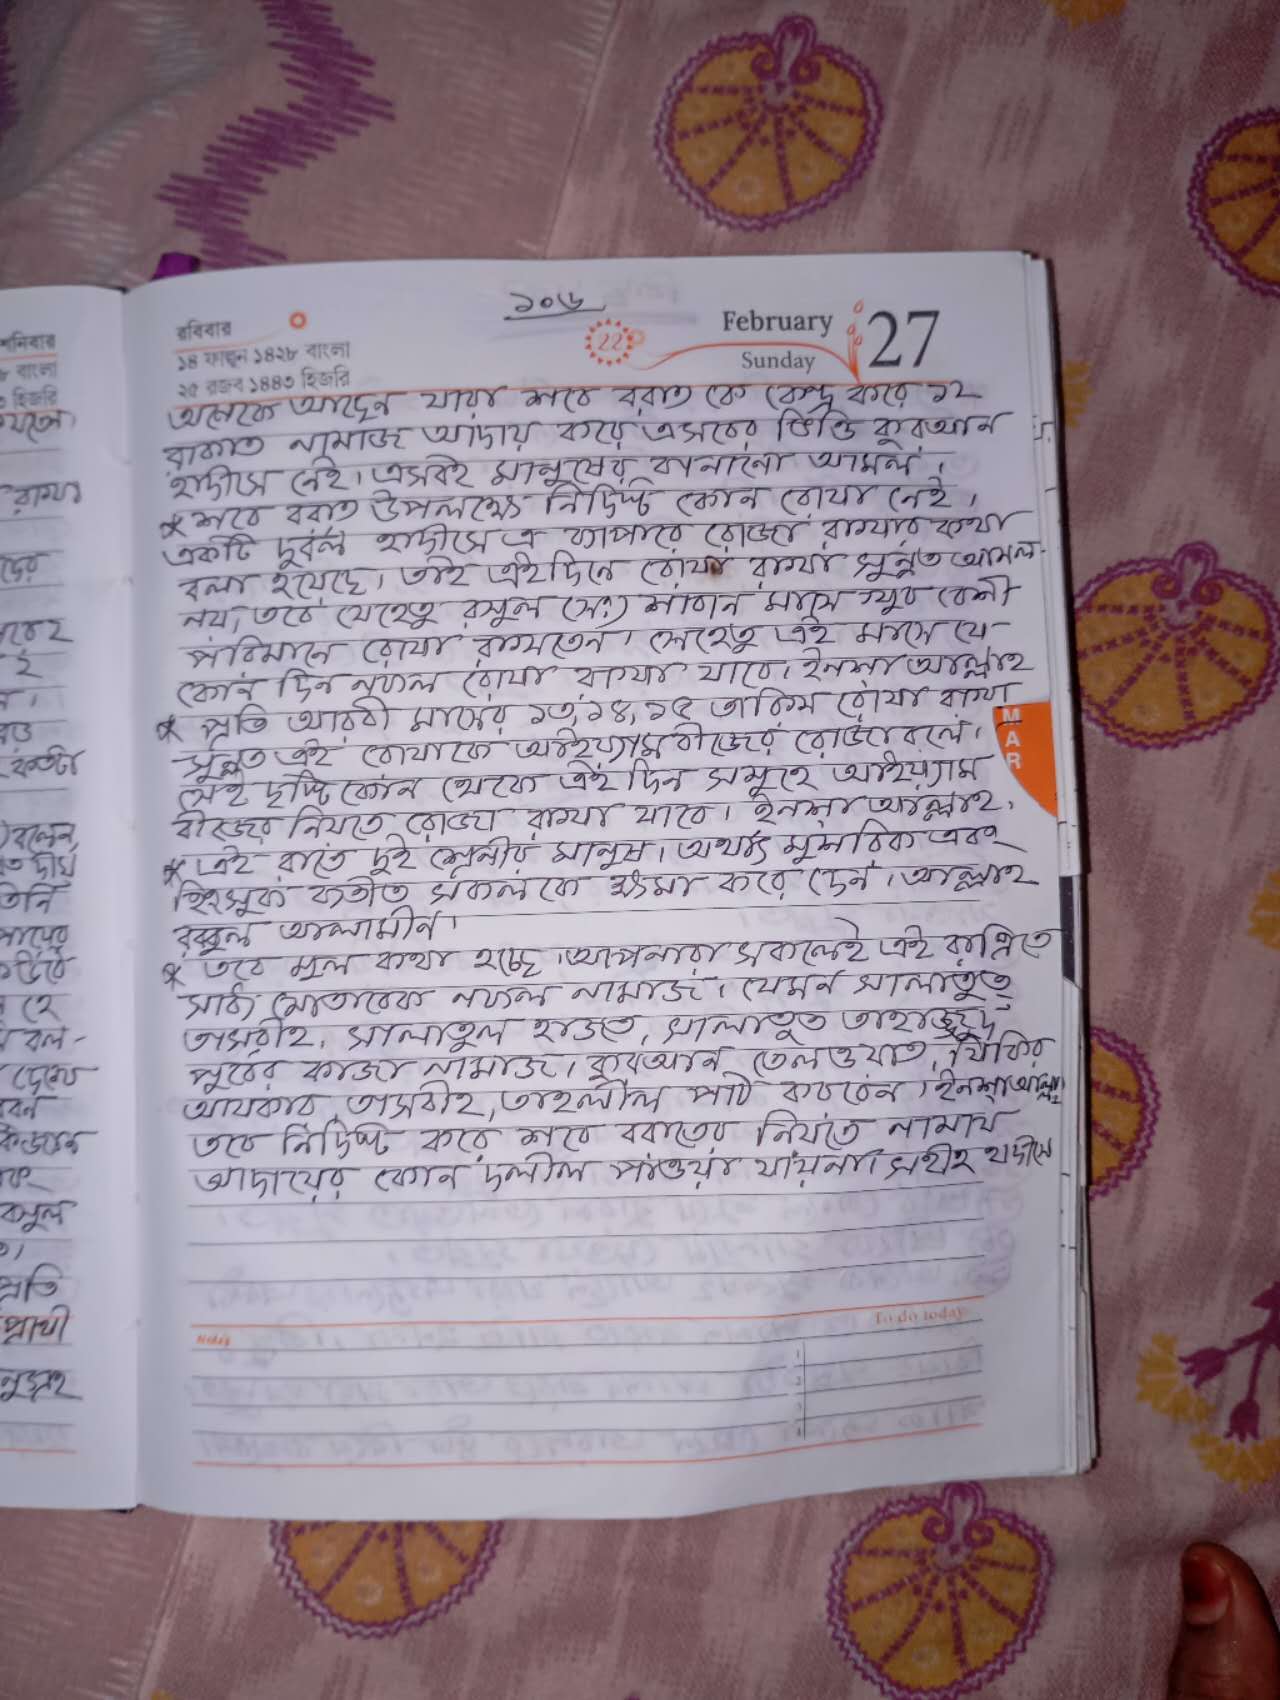 ১০৬
রবিবার
১৪ ফাল্গুন ১৪২৮ বাংলা
২৫ রজব ১৪৪৩ হিজরি
22
February
Sunday
27
অনেকে আছেন যারা শবে বরাত কে কেন্দ্র করে ১২
রাকাত নামাজ আদায় করে এসবের ভিত্তি কুরআন
হাদীসে নেই। এসবই মানুষের বানানো আমল।
* শবে বরাত উপলক্ষে নির্দিষ্ট কোন রোযা নেই।
একটি দুর্বল হাদীসে এ ব্যাপারে রোজা রাখার কথা
বলা হয়েছে। তাই এইদিনে রোযা রাখা সুন্নত আমল
নয়, তবে যেহেতু রসুল (সঃ) শাবান মাসে খুব বেশী
পরিমানে রোযা রাখতেন। সেহেতু এই মাসে যে-
কোন দিন নফল রোযা রাখা যাবে। ইনশা আল্লাহ
* প্রতি আরবী মাসের ১৩, ১৪, ১৫ তারিখ রোযা রাখা
সুন্নত এই রোযাকে আইয়্যাম বীজের রোজা বলে।
সেই দৃষ্টি কোন থেকে এই দিন সমূহে আইয়্যাম
বীজের নিয়তে রোজা রাখা যাবে। ইনশা আল্লাহ।
* এই রাতে দুই শ্রেনীর মানুষ। অর্থাৎ মুশরিক এবং
হিংসুক ব্যতীত সকলকে ক্ষমা করে দেন। আল্লাহ
রব্বুল আলামীন।
* তবে মুল কথা হচ্ছে। আপনারা সকলেই এই রাত্রিতে
সাধ্য মোতাবেক নফল নামাজ। যেমন সালাতুত্
তাসবীহ, সালাতুল হাজত, সালাতুত তাহাজ্জুদ
পূর্বের কাজা নামাজ। কুরআন তেলওয়াত, যিকির
আযকার, তাসবীহ, তাহলীল পাঠ করবেন। ইনশাআল্লাহ
তবে নির্দিষ্ট করে শবে বরাতের নিয়তে নামায
আদায়ের কোন দলীল পাওয়া যায়না। সহীহ হাদীসে
MAR
Notes
To do today
1
2
3
4